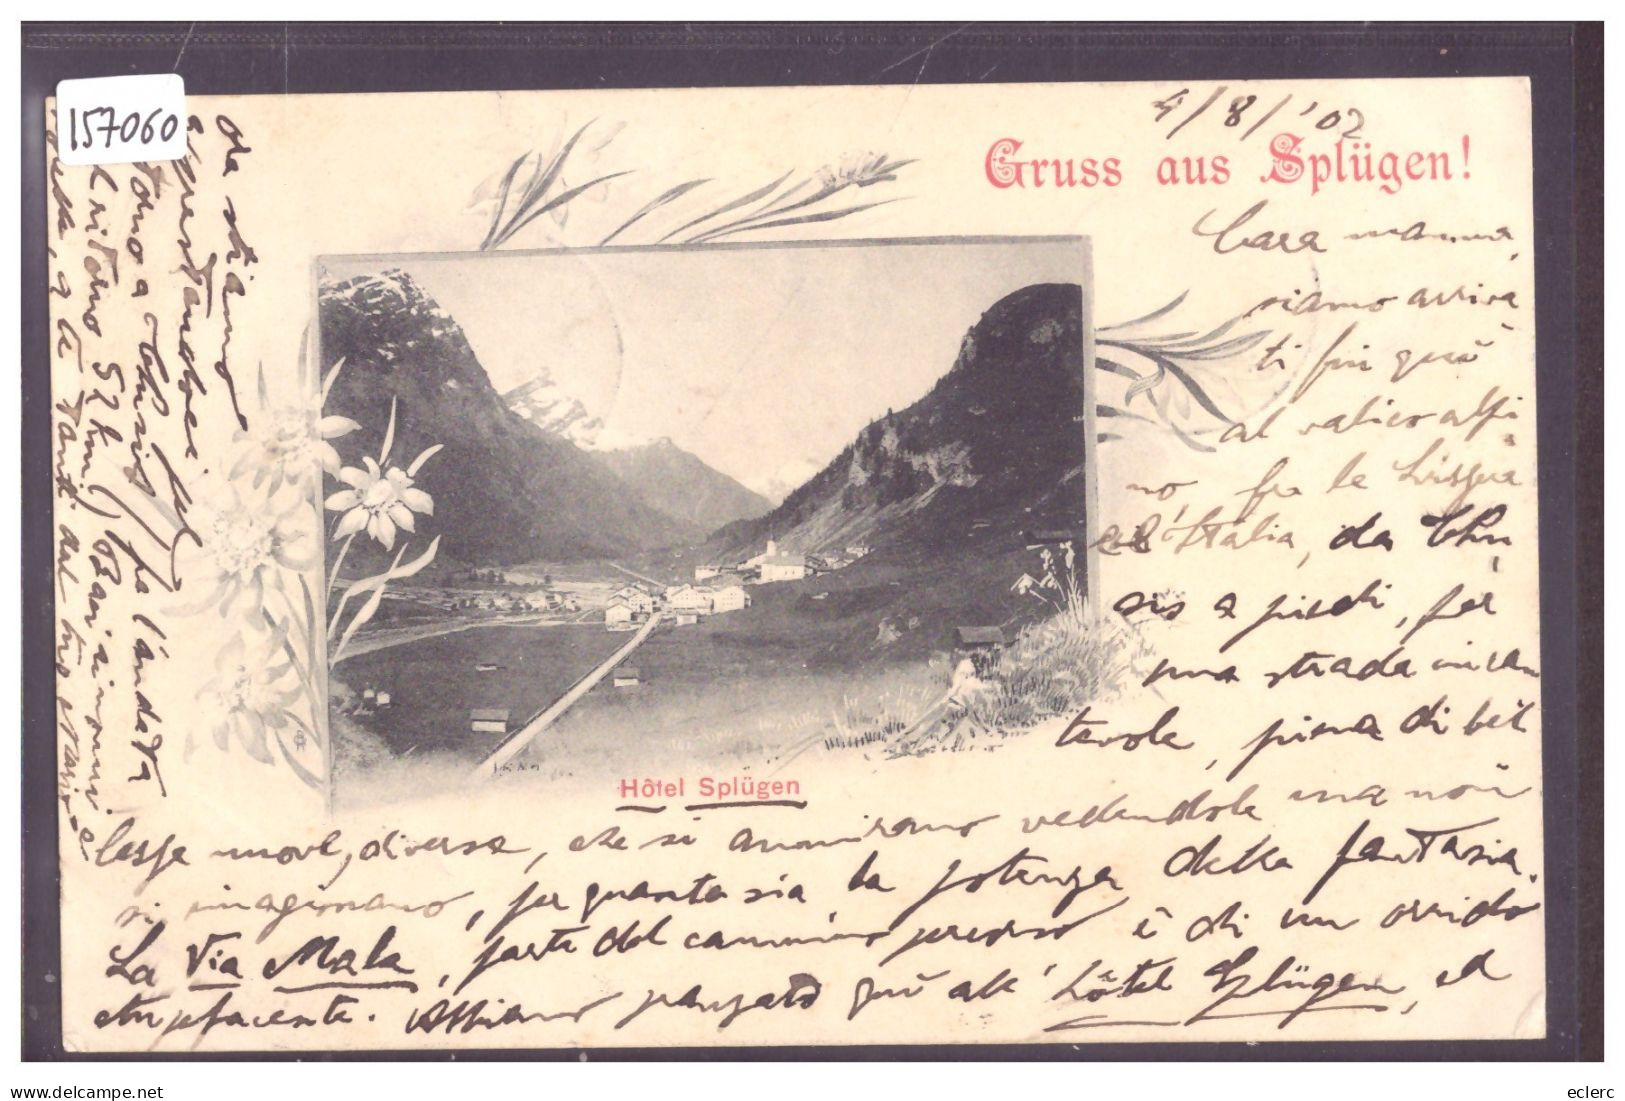 157060
4/8/'02
Gruss aus Splügen!
Cara mamma,
siamo arriva
ti fin quà
al valico alpi
no, fra la Svizzera
e l'Italia, da Thu
sis a piedi, per
una strada incan
tevole, piena di bel
Hôtel Splügen
lezze nuove, diverse, che si ammirano vedendole ma non
si immaginano, per quanta sia la potenza della fantasia.
La Via Mala, parte del cammino percorso è di un orrido
stupefacente. Abbiamo pranzato quà all' Hôtel Splügen, ed
ora stiamo
aspettando pel
ritorno a Thusis (fra l'andata
e ritorno 52 km)
eclerc